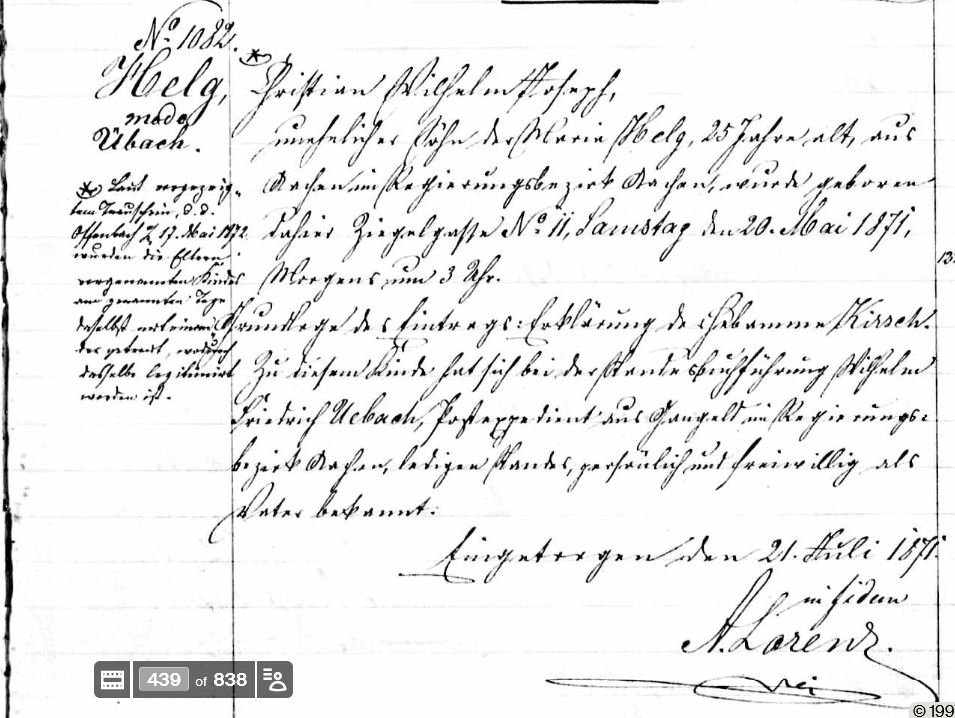 No. 1082.
Helg,
modo
Übach.
* Laut vorgezeig-
tem Trauschein, d. d.
Offenbach 17. Mai 1872
wurden die Eltern
vorgenannten Kindes
am genannten Tage
daselbst mit einan-
der getraut, wodurch
dasselbe legitimirt
worden ist.
* Christian Wilhelm Joseph,
unehelicher Sohn der Maria Helg, 25 Jahre alt, aus
Aachen im Regierungsbezirk Aachen, wurde geboren
dahier Ziegelgasse No. 11, Samstag den 20. Mai 1871,
Morgens um 3 Uhr.
Grundlage des Eintrags: Erklärung der Hebamme Kirsch.
Zu diesem Kinde hat sich bei der Standesbuchführung Wilhelm
Friedrich Uebach, Postexpedient aus Gangelt im Regierungs-
bezirk Aachen, ledigen Standes, persönlich und freiwillig als
Vater bekannt.
Eingetragen den 21. Juli 1871.
in fidem
A. Lorenz.
439 of 838
© 199